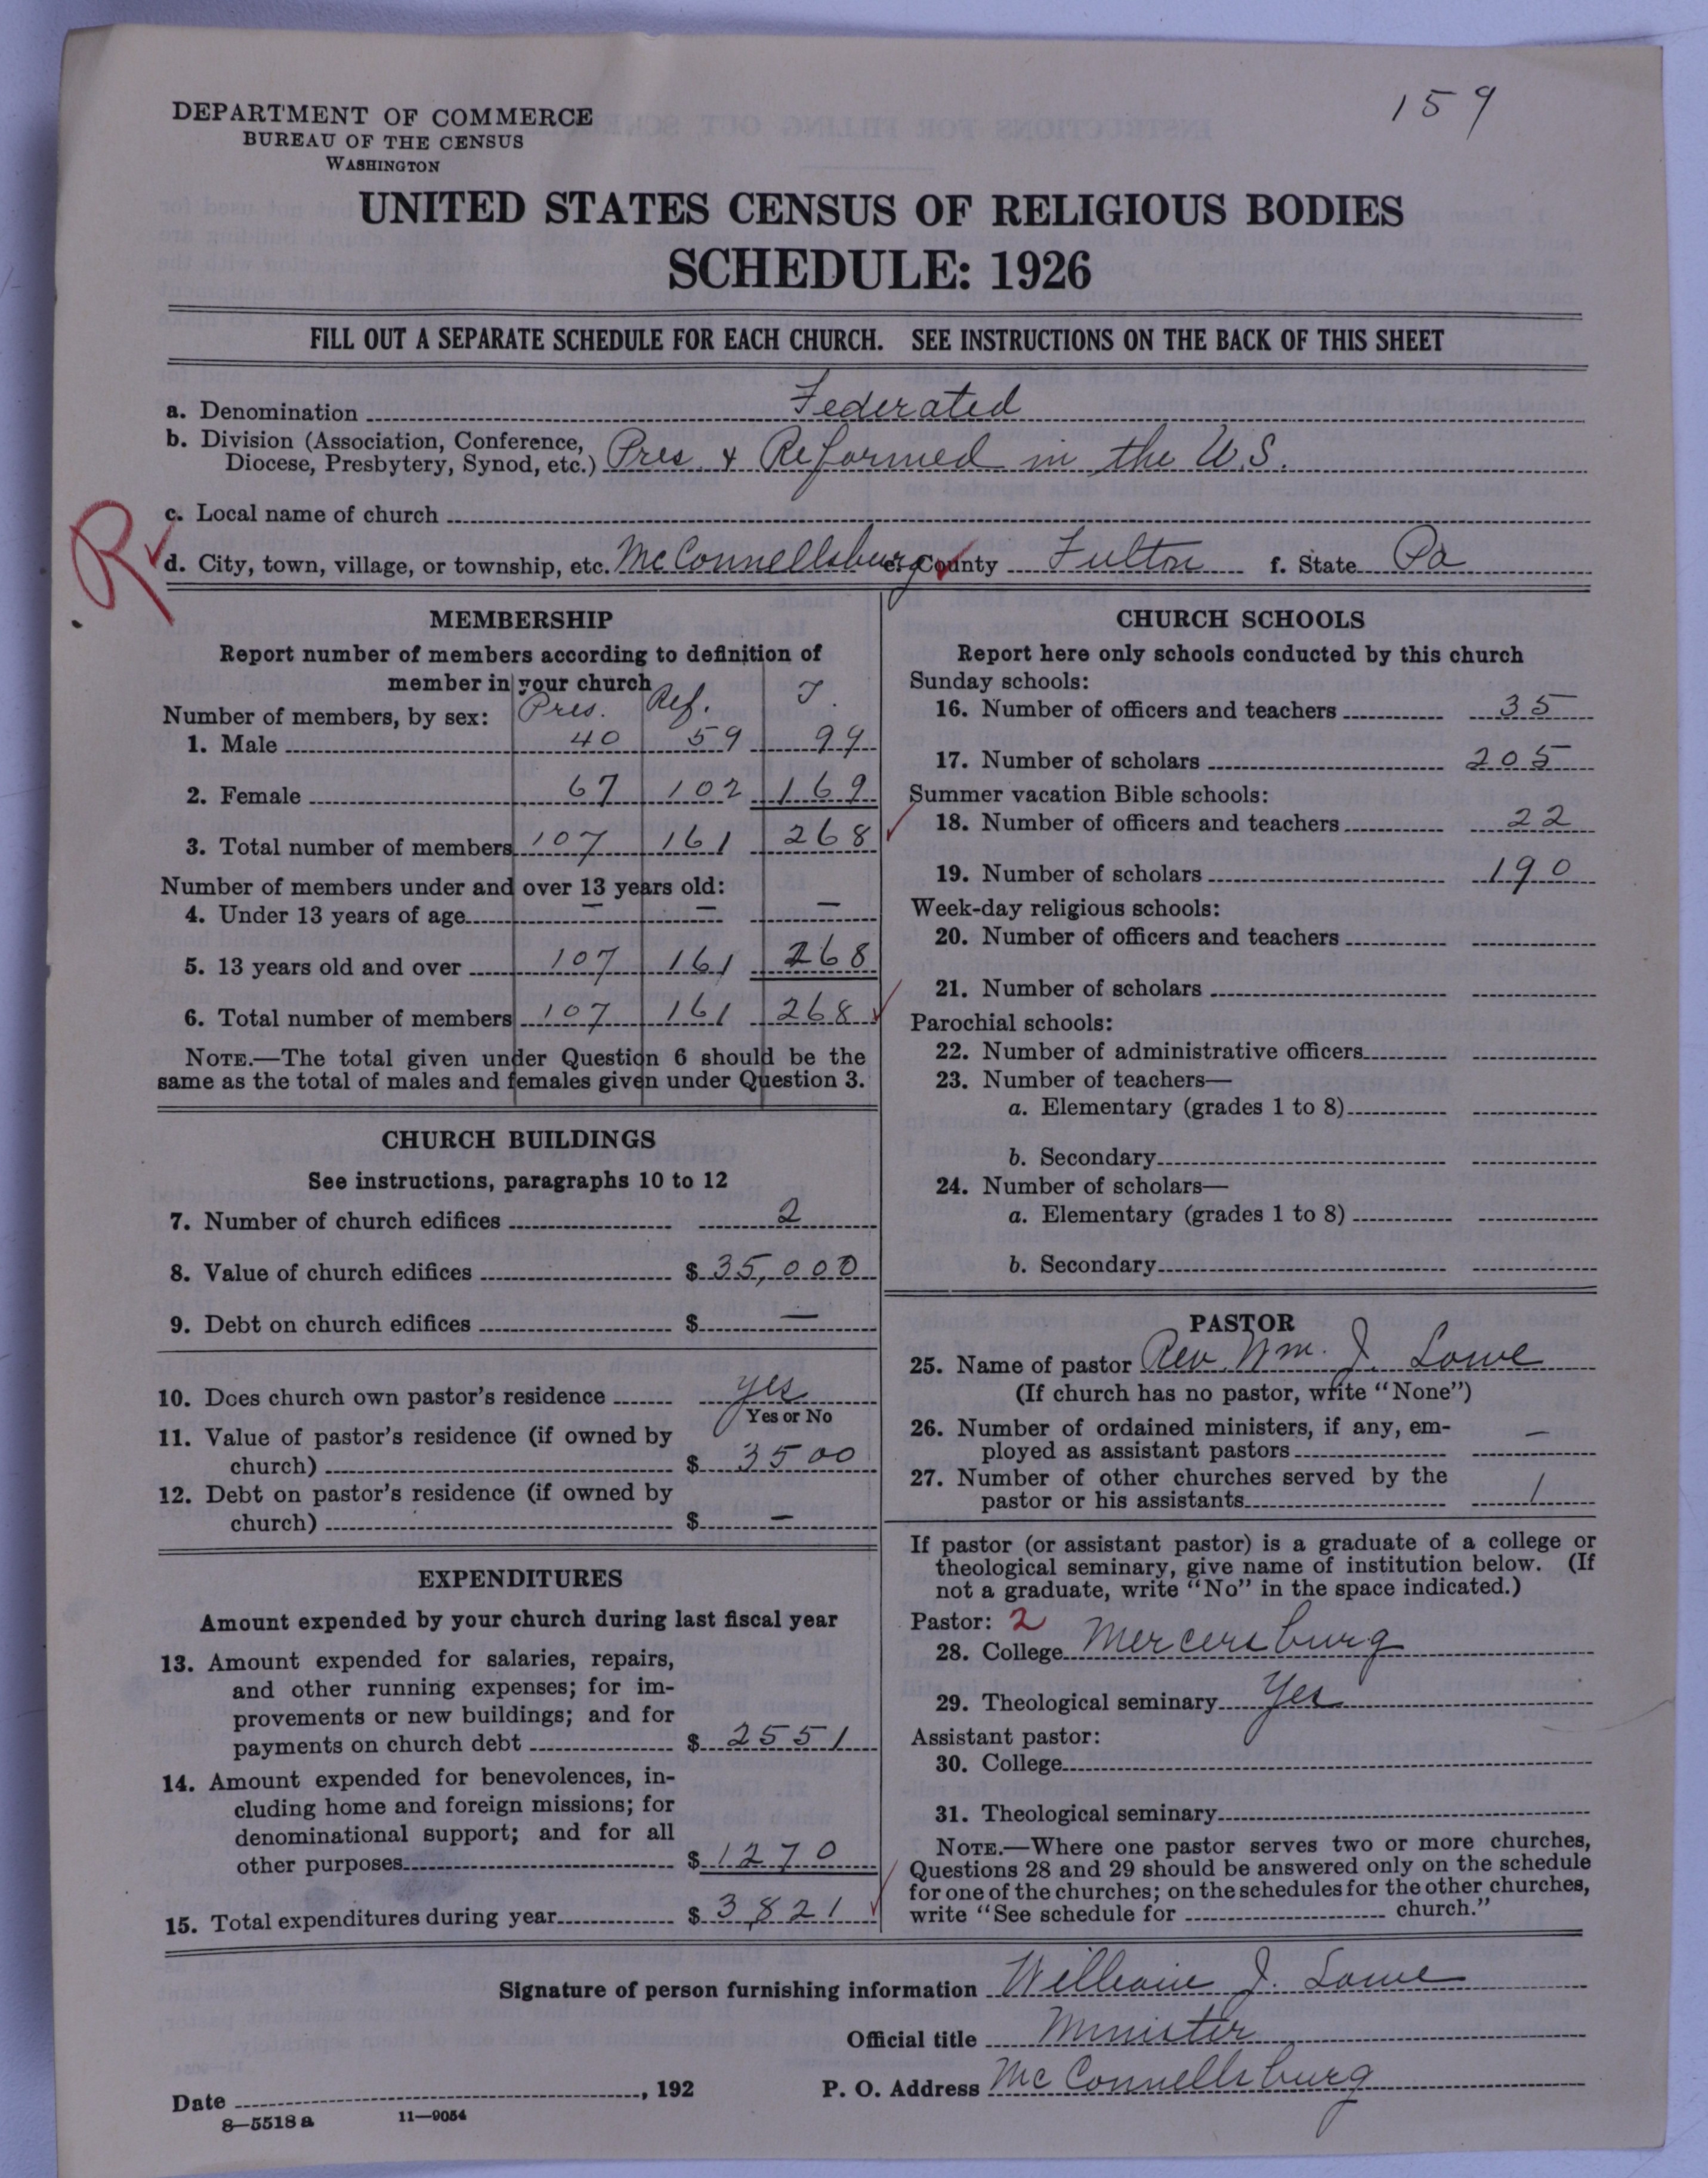 159
DEPARTMENT OF COMMERCE
BUREAU OF THE CENSUS
WASHINGTON
UNITED STATES CENSUS OF RELIGIOUS BODIES
SCHEDULE: 1926
FILL OUT A SEPARATE SCHEDULE FOR EACH CHURCH. SEE INSTRUCTIONS ON THE BACK OF THIS SHEET
a. Denomination Federated
b. Division (Association, Conference,
Diocese, Presbytery, Synod, etc.) Pres. & Reformed in the U.S.
R
c. Local name of church
d. City, town, village, or township, etc. McConnellsburg e. County Fulton f. State Pa
MEMBERSHIP
Report number of members according to definition of
member in your church
Number of members, by sex: Pres. Ref. T.
1. Male 40 59 99
2. Female 67 102 169
3. Total number of members 107 161 268
Number of members under and over 13 years old:
4. Under 13 years of age — — —
5. 13 years old and over 107 161 268
6. Total number of members 107 161 268
NOTE.—The total given under Question 6 should be the
same as the total of males and females given under Question 3.
CHURCH BUILDINGS
See instructions, paragraphs 10 to 12
7. Number of church edifices 2
8. Value of church edifices $ 35,000
9. Debt on church edifices $ —
10. Does church own pastor's residence yes
Yes or No
11. Value of pastor's residence (if owned by
church) $ 3500
12. Debt on pastor's residence (if owned by
church) $ —
EXPENDITURES
Amount expended by your church during last fiscal year
13. Amount expended for salaries, repairs,
and other running expenses; for im-
provements or new buildings; and for
payments on church debt $ 2551
14. Amount expended for benevolences, in-
cluding home and foreign missions; for
denominational support; and for all
other purposes $ 1270
15. Total expenditures during year $ 3821
CHURCH SCHOOLS
Report here only schools conducted by this church
Sunday schools:
16. Number of officers and teachers 35
17. Number of scholars 205
Summer vacation Bible schools:
18. Number of officers and teachers 22
19. Number of scholars 190
Week-day religious schools:
20. Number of officers and teachers
21. Number of scholars
Parochial schools:
22. Number of administrative officers
23. Number of teachers—
a. Elementary (grades 1 to 8)
b. Secondary
24. Number of scholars—
a. Elementary (grades 1 to 8)
b. Secondary
PASTOR
25. Name of pastor Rev. Wm. J. Lowe
(If church has no pastor, write "None")
26. Number of ordained ministers, if any, em-
ployed as assistant pastors —
27. Number of other churches served by the
pastor or his assistants 1
If pastor (or assistant pastor) is a graduate of a college or
theological seminary, give name of institution below. (If
not a graduate, write "No" in the space indicated.)
Pastor: 2
28. College Mercersburg
29. Theological seminary Yes
Assistant pastor:
30. College
31. Theological seminary
NOTE.—Where one pastor serves two or more churches,
Questions 28 and 29 should be answered only on the schedule
for one of the churches; on the schedules for the other churches,
write "See schedule for church."
Signature of person furnishing information William J. Lowe
Official title Minister
Date , 192 P. O. Address McConnellsburg
8—5518a 11—9054